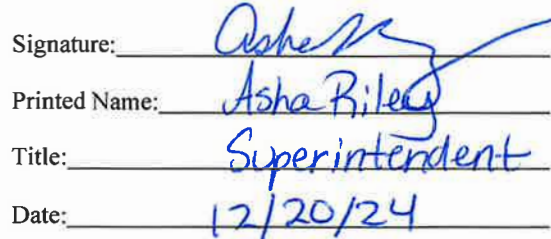 Signature: Ashe
Printed Name: Asha Riley
Title: Superintendent
Date: 12/20/24